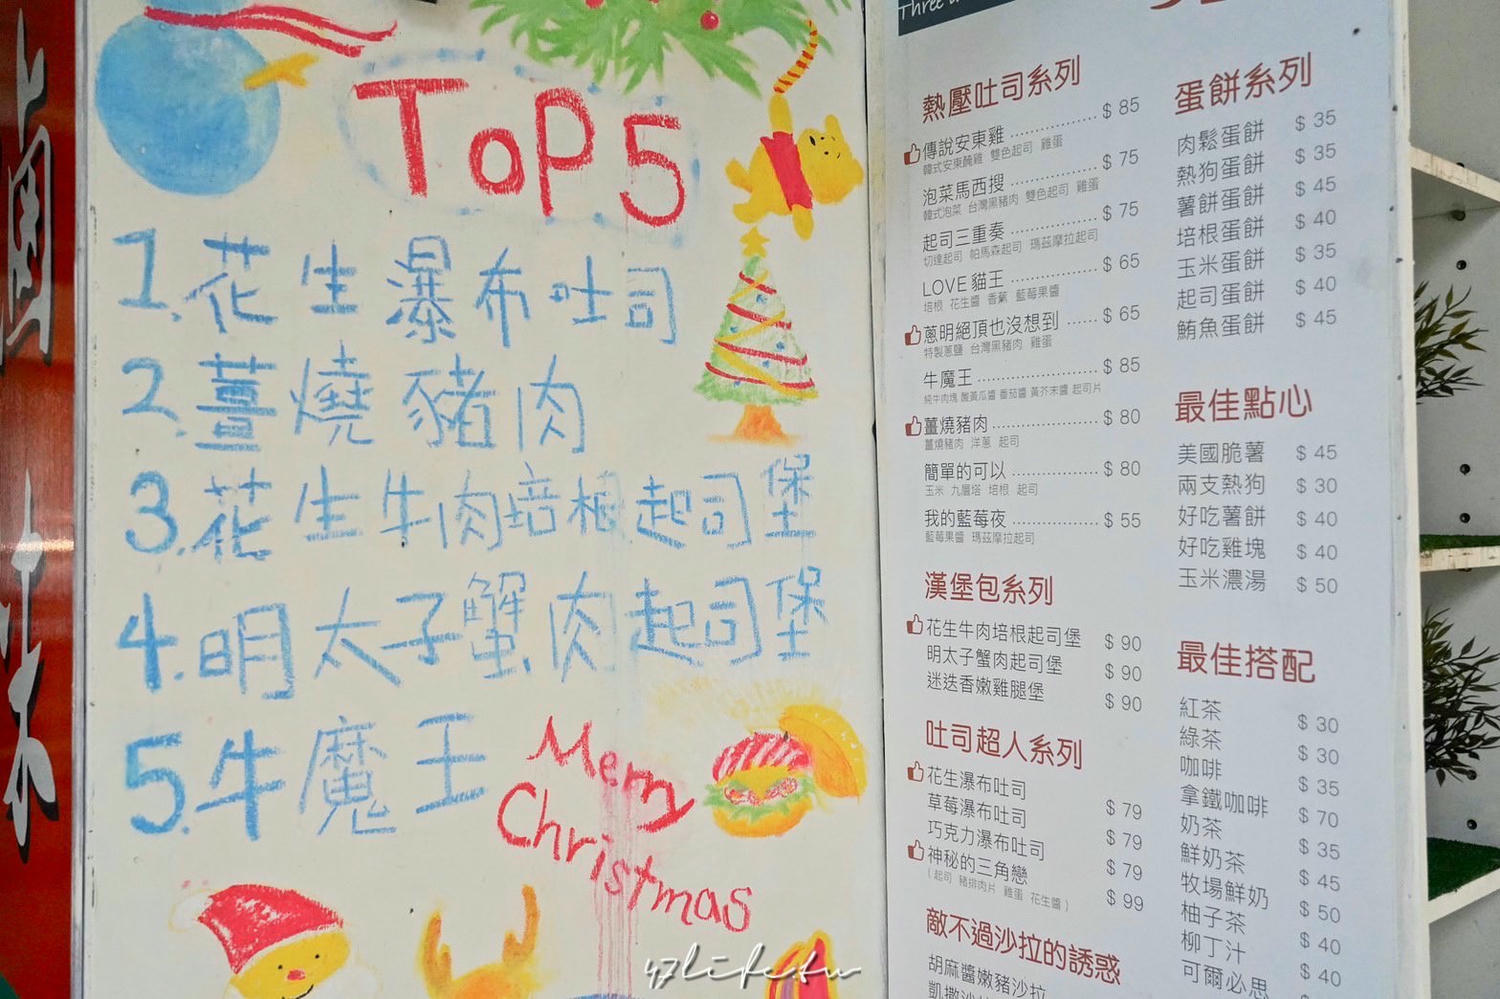 Top5
1.花生瀑布吐司
2.薑燒豬肉
3.花生牛肉培根起司堡
4.明太子蟹肉起司堡
5.牛魔王
Merry
Christmas
熱壓吐司系列
傳說安東雞 $ 85
韓式安東醃雞 雙色起司 雞蛋
泡菜馬西搜 $ 75
韓式泡菜 台灣黑豬肉 雙色起司 雞蛋
起司三重奏 $ 75
切達起司 帕馬森起司 瑪茲摩拉起司
LOVE 貓王 $ 65
培根 花生醬 香蕉 藍莓果醬
蔥明絕頂也沒想到 $ 65
特製蔥鹽 台灣黑豬肉 雞蛋
牛魔王 $ 85
純牛肉塊 酸黃瓜醬 番茄醬 黃芥末醬 起司片
薑燒豬肉 $ 80
薑燒豬肉 洋蔥 起司
簡單的可以 $ 80
玉米 九層塔 培根 起司
我的藍莓夜 $ 55
藍莓果醬 瑪茲摩拉起司
漢堡包系列
花生牛肉培根起司堡 $ 90
明太子蟹肉起司堡 $ 90
迷迭香嫩雞腿堡 $ 90
吐司超人系列
花生瀑布吐司 $ 79
草莓瀑布吐司 $ 79
巧克力瀑布吐司 $ 79
神秘的三角戀 $ 99
( 起司 豬排肉片 雞蛋 花生醬 )
敵不過沙拉的誘惑
胡麻醬嫩豬沙拉
凱撒沙
蛋餅系列
肉鬆蛋餅 $ 35
熱狗蛋餅 $ 35
薯餅蛋餅 $ 45
培根蛋餅 $ 40
玉米蛋餅 $ 35
起司蛋餅 $ 40
鮪魚蛋餅 $ 45
最佳點心
美國脆薯 $ 45
兩支熱狗 $ 30
好吃薯餅 $ 40
好吃雞塊 $ 40
玉米濃湯 $ 50
最佳搭配
紅茶 $ 30
綠茶 $ 30
咖啡 $ 35
拿鐵咖啡 $ 70
奶茶 $ 35
鮮奶茶 $ 45
牧場鮮奶 $ 50
柚子茶 $ 40
柳丁汁 $ 40
可爾必思
47life.tw